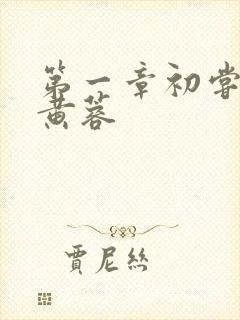 第一章初尝
黄蓉
賈尼絲